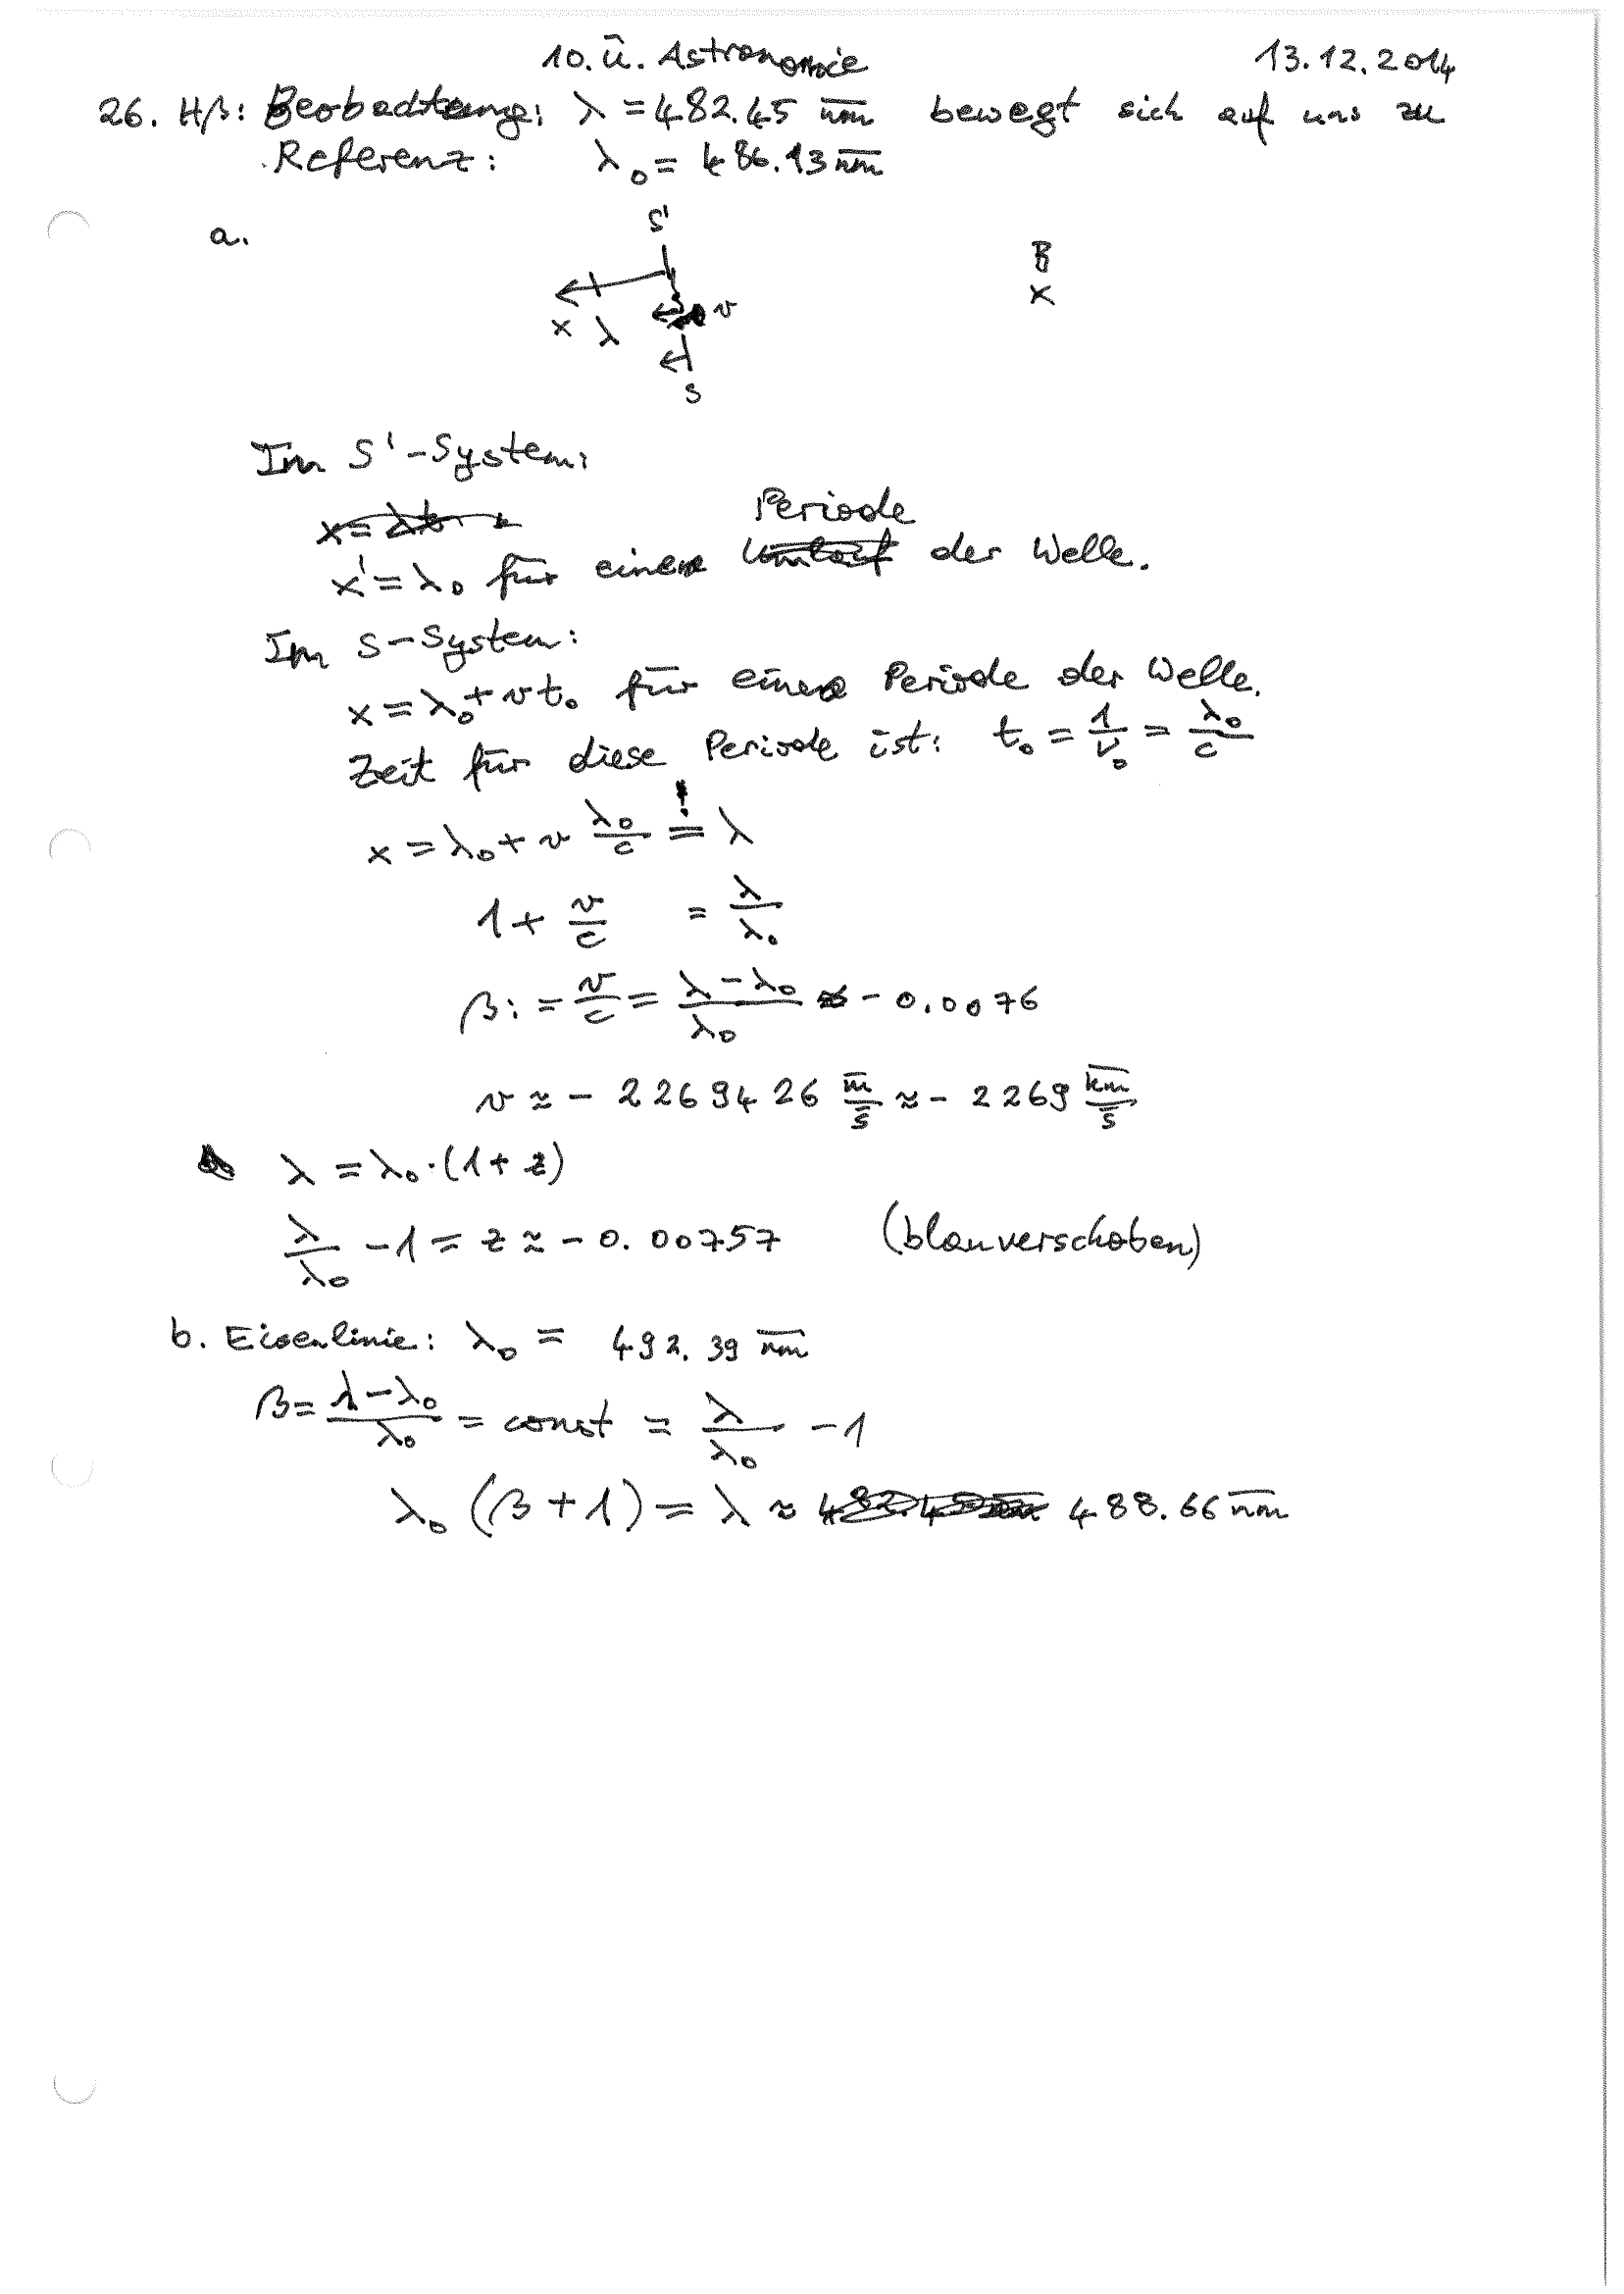 10. Ü. Astronomie 13.12.2014
26. Hβ: Beobachtung: λ = 482.45 nm bewegt sich auf uns zu
Referenz: λ₀ = 486.13 nm
a.
S' B
x λ v x
S
Im S'-System:
x' = λ₀ für eine Periode der Welle.
Im S-System:
x = λ₀ + v t₀ für eine Periode der Welle.
Zeit für diese Periode ist: t₀ = 1/ν₀ = λ₀/c
x = λ₀ + v λ₀/c =! λ
1 + v/c = λ/λ₀
β := v/c = (λ - λ₀)/λ₀ ≈ - 0.0076
v ≈ - 2269426 m/s ≈ - 2269 km/s
λ = λ₀ · (1 + z)
λ/λ₀ - 1 = z ≈ - 0.00757 (blauverschoben)
b. Eisenlinie: λ₀ = 492.39 nm
β = (λ - λ₀)/λ₀ = const = λ/λ₀ - 1
λ₀ (β + 1) = λ ≈ 488.66 nm